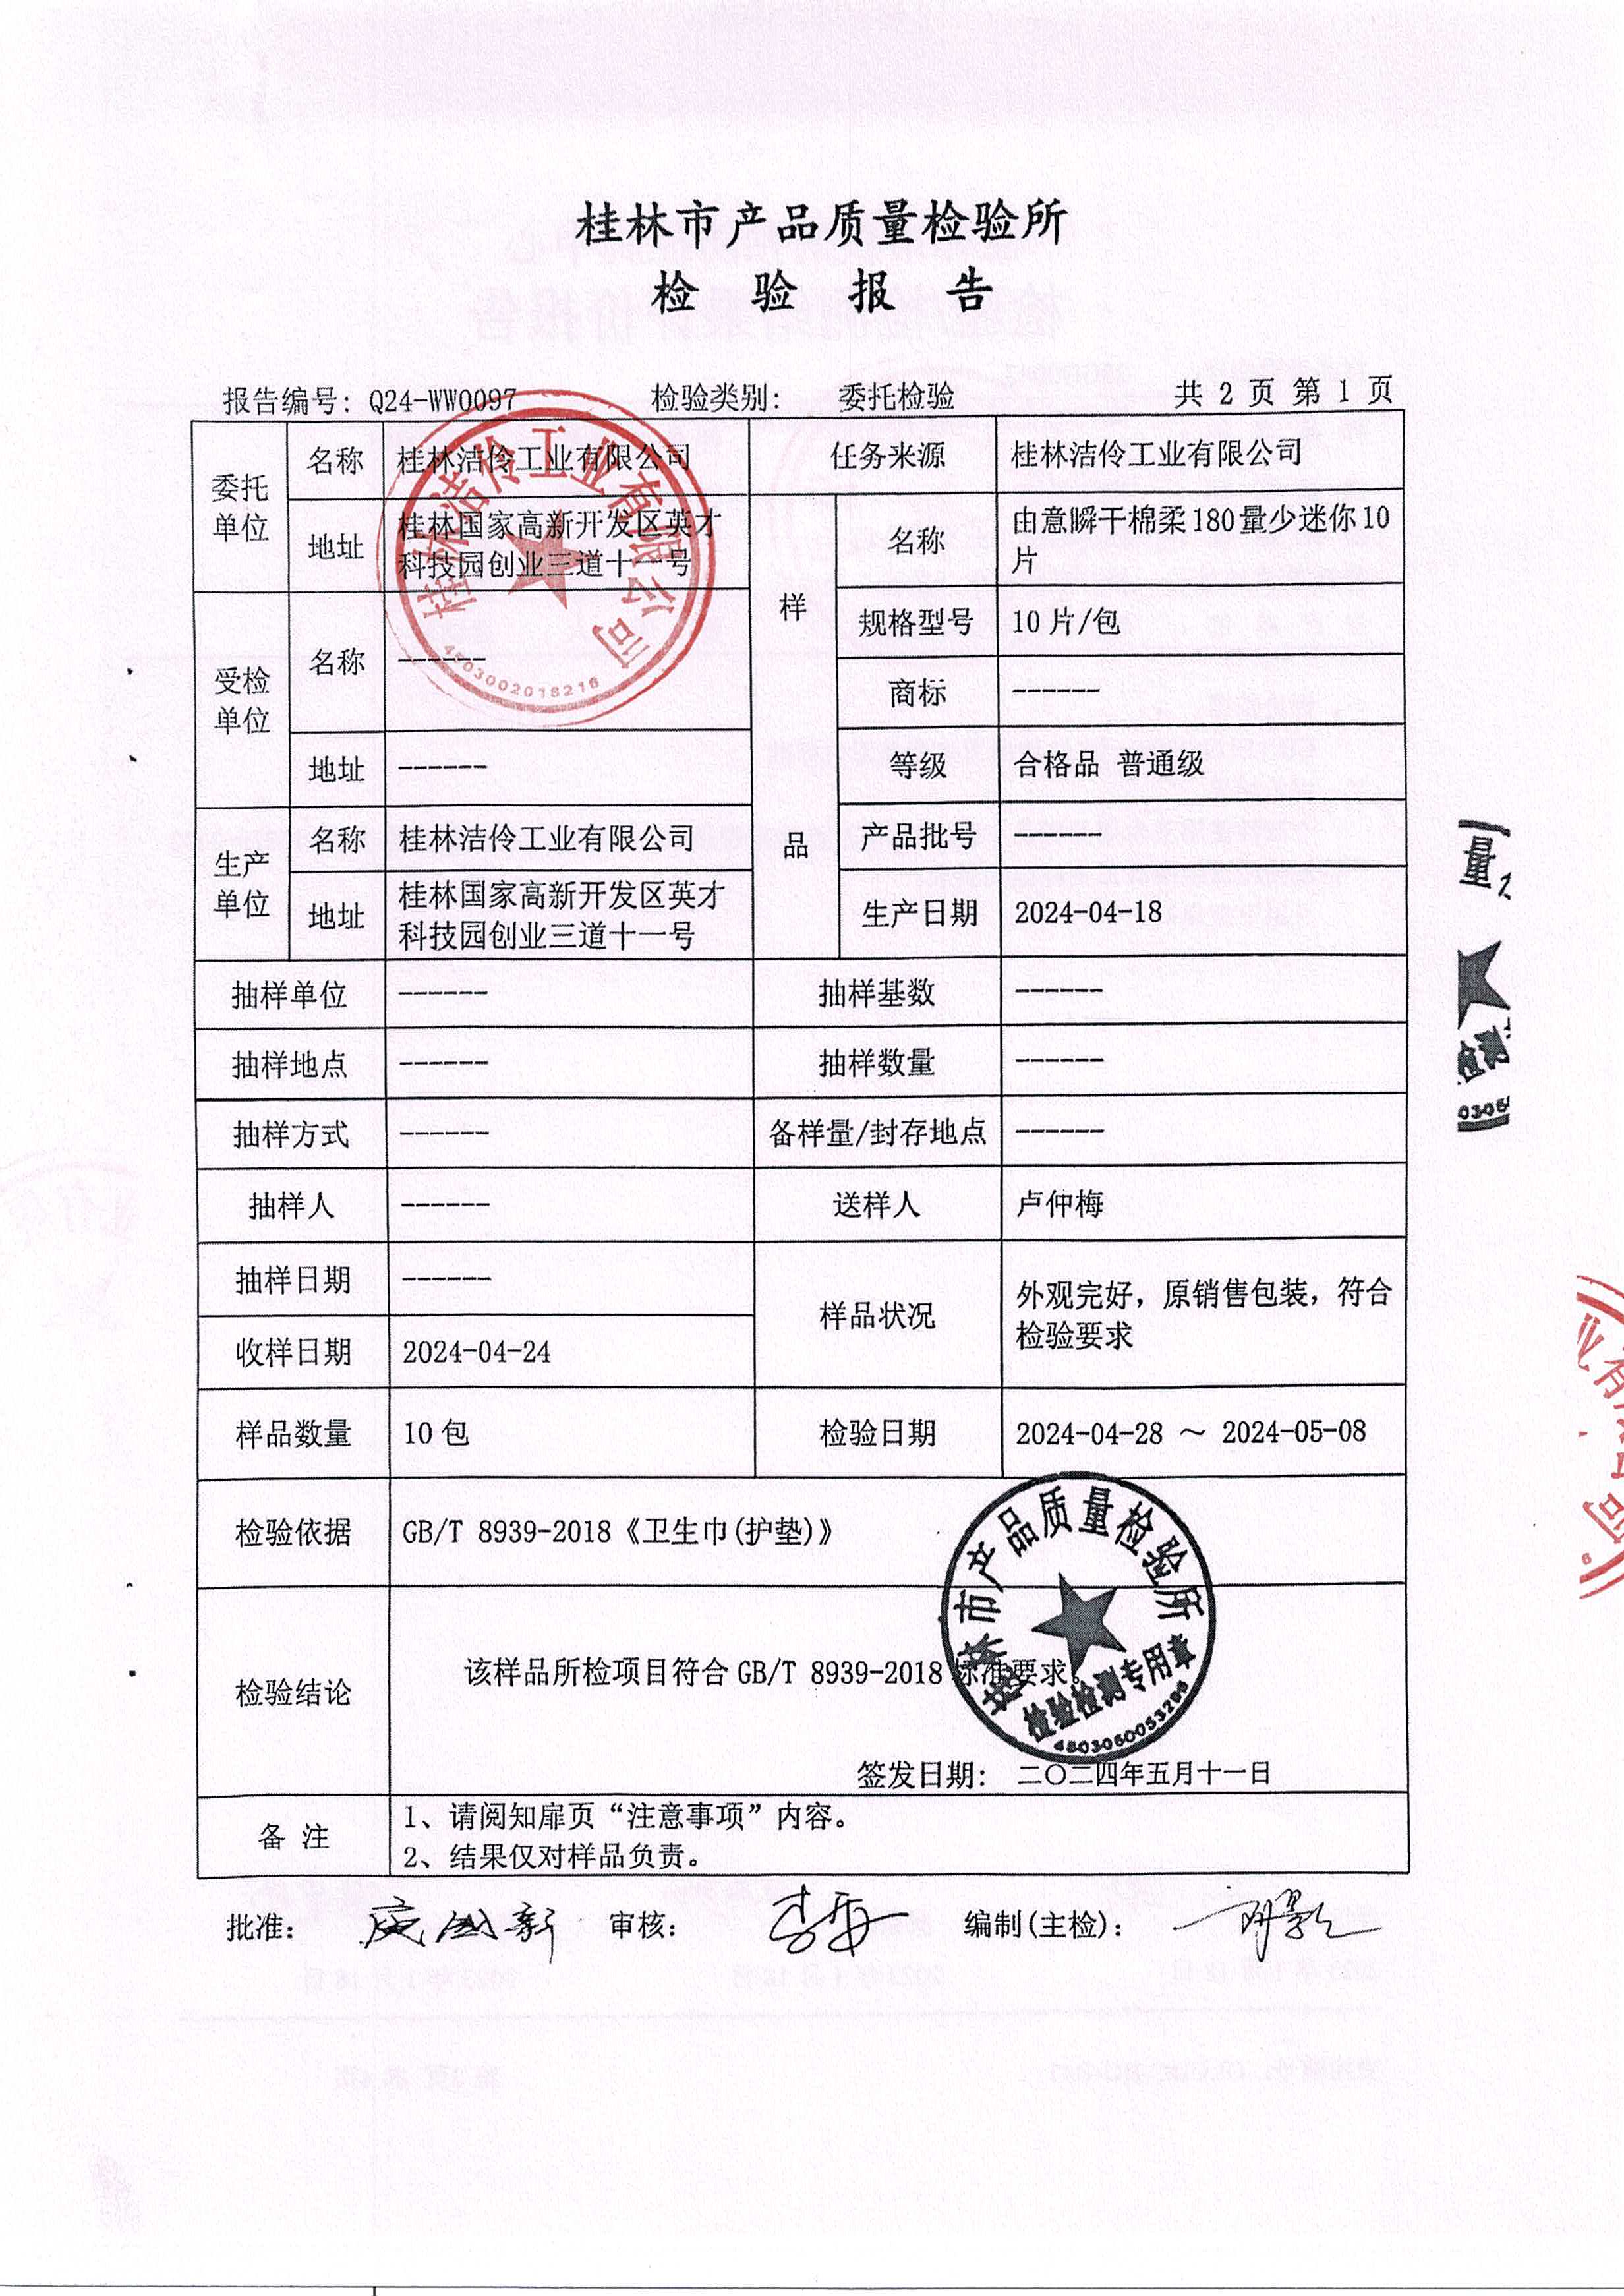 桂林市产品质量检验所
检 验 报 告
报告编号: Q24-WW0097 检验类别: 委托检验 共 2 页 第 1 页
委托单位 名称 桂林洁伶工业有限公司 任务来源 桂林洁伶工业有限公司
地址 桂林国家高新开发区英才科技园创业三道十一号
样品 名称 由意瞬干棉柔180量少迷你10片
规格型号 10 片/包
受检单位 名称 ------
商标 ------
地址 ------ 等级 合格品 普通级
生产单位 名称 桂林洁伶工业有限公司 产品批号 ------
地址 桂林国家高新开发区英才科技园创业三道十一号 生产日期 2024-04-18
抽样单位 ------ 抽样基数 ------
抽样地点 ------ 抽样数量 ------
抽样方式 ------ 备样量/封存地点 ------
抽样人 ------ 送样人 卢仲梅
抽样日期 ------ 样品状况 外观完好，原销售包装，符合检验要求
收样日期 2024-04-24
样品数量 10 包 检验日期 2024-04-28 ～ 2024-05-08
检验依据 GB/T 8939-2018《卫生巾(护垫)》
检验结论 该样品所检项目符合 GB/T 8939-2018 标准要求。
签发日期: 二〇二四年五月十一日
备 注 1、请阅知扉页“注意事项”内容。
2、结果仅对样品负责。
批准: 审核: 编制(主检):
桂林洁伶工业有限公司
4503002018216
桂林市产品质量检验所
检验检测专用章